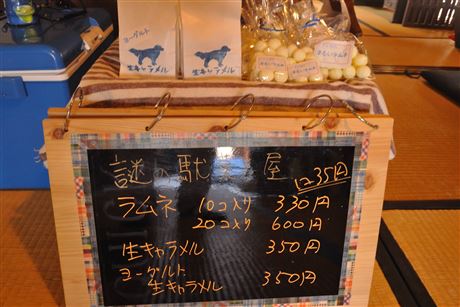 ヨーグルト
生キャラメル
生キャラメル
まるいラムネ
謎の駄菓子屋
1コ35円
ラムネ 10コ入り 330円
20コ入り 600円
生キャラメル 350円
ヨーグルト
生キャラメル 350円